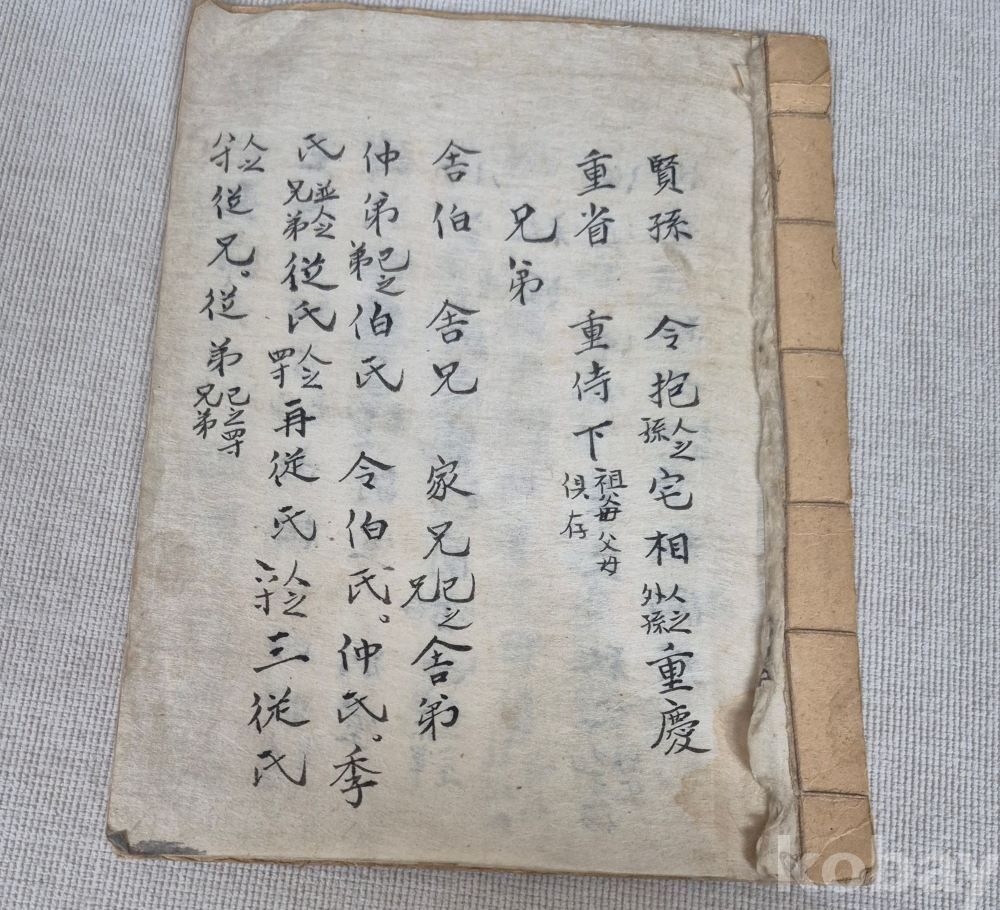 賢孫 令抱人之孫宅相人之外孫重慶
重省 重侍下祖父母父母俱存
兄弟
舍伯 舍兄 家兄己之兄舍弟
仲弟己之弟伯氏 令伯氏。仲氏。季
氏並人之兄弟從氏人之四寸再從氏人之六寸三從氏
人之八寸從兄。從弟己之四寸兄弟
kobay